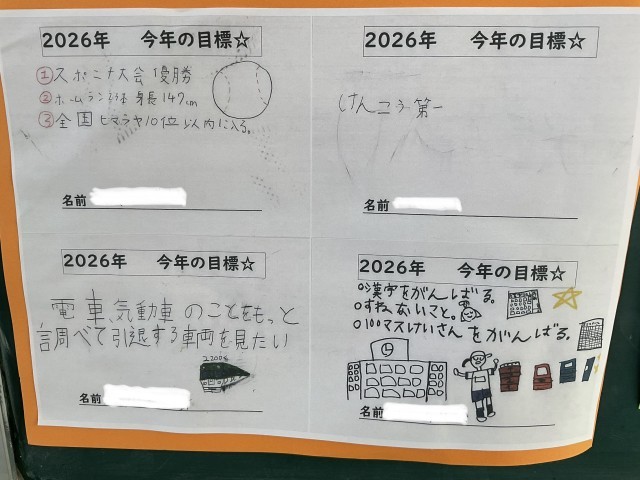 2026年 今年の目標☆
①スポニチ大会優勝
②ホームラン 身長147cm
③全国ヒマラヤ10位以内に入る。
名前
2026年 今年の目標☆
けんこう第一
名前
2026年 今年の目標☆
電車、気動車のことをもっと
調べて引退する車両を見たい
名前
2026年 今年の目標☆
○漢字をがんばる。
○すねないこと。
○100マスけいさんをがんばる。
名前